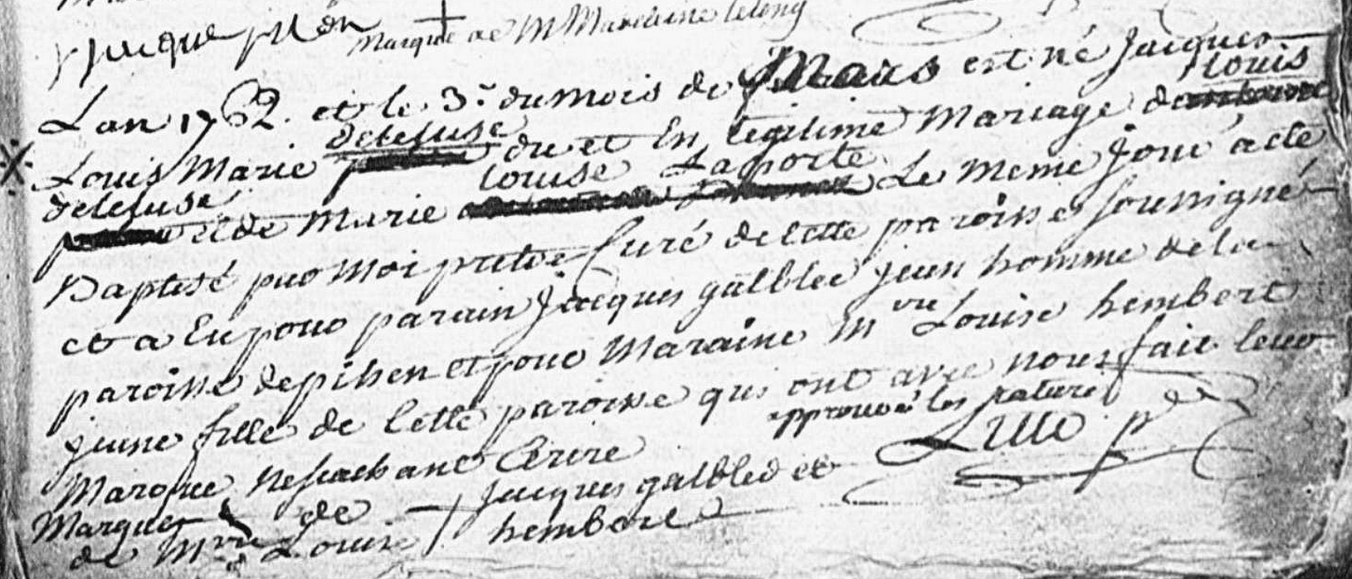 Marque de M Madelaine
Lan 1762. et le 3.e du mois de Mars est né Jacques
Louis Marie delefuse du et En legitime Mariage de louis
delefuse et de Marie louise Laporte Le Meme Jour a ete
Baptisé par Moi pretre Curé de cette paroisse soussigné
et a Eu pour parain Jacques galbled jeun homme de la
paroisse de pihen et pour Maraine M rie Louise hembert
jeune fille de Cette paroisse qui ont avec nous fait leur
Marque ne scachant Ecrire approuvé les ratures
Marques de Jacques galbled et
de M rie Louise hembert